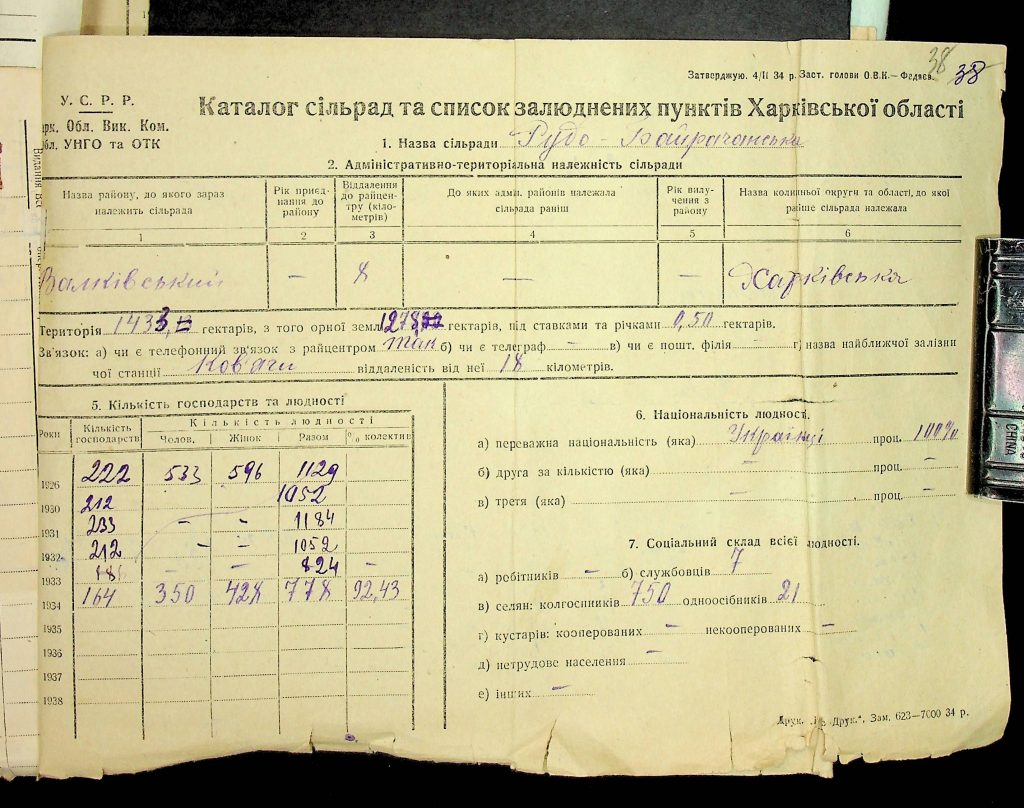 38 38
Затверджую. 4/II 34 р. Заст. голови О.В.К.— Федяєв.
У. С. Р. Р.
Обл. Вик. Ком.
УНГО та ОТК
Каталог сільрад та список залюднених пунктів Харківської області
1. Назва сільради Рудо-Байрачанська
2. Адміністративно-територіальна належність сільради
Назва району, до якого зараз належить сільрада
Рік приєднання до району
Віддалення до райцентру (кілометрів)
До яких адм. районів належала сільрада раніш
Рік вилучення з району
Назва колишньої округи та області, до якої раніше сільрада належала
1 2 3 4 5 6
Валківський — 8 — — Харківська
Територія 1433, гектарів, з того орної землі 1278, гектарів, під ставками та річками 0,50 гектарів.
Зв'язок: а) чи є телефонний зв'язок з райцентром так б) чи є телеграф — в) чи є пошт. філія - г) назва найближчої залізничої станції Ков'яги віддаленість від неї 18 кілометрів.
5. Кількість господарств та людності
Роки
Кількість господарств
Кількість людності
Чолов. Жінок Разом % колектив
1926 222 533 596 1129
1930 212 1052
1931 233 - - 1184
1932 212 - - 1052
1933 - - 824 -
1934 164 350 428 778 92,43
1935
1936
1937
1938
6. Національність людності.
а) переважна національність (яка) Українці проц. 100%
б) друга за кількістю (яка) — проц. -
в) третя (яка) — проц. -
7. Соціальний склад всієї людності.
а) робітників - б) службовців 7
в) селян: колгоспників 750 одноосібників 21
г) кустарів: кооперованих - некооперованих -
д) нетрудове населення -
е) інших -
Друк. Друк.", Зам. 623—7000 34 р.
CHINA